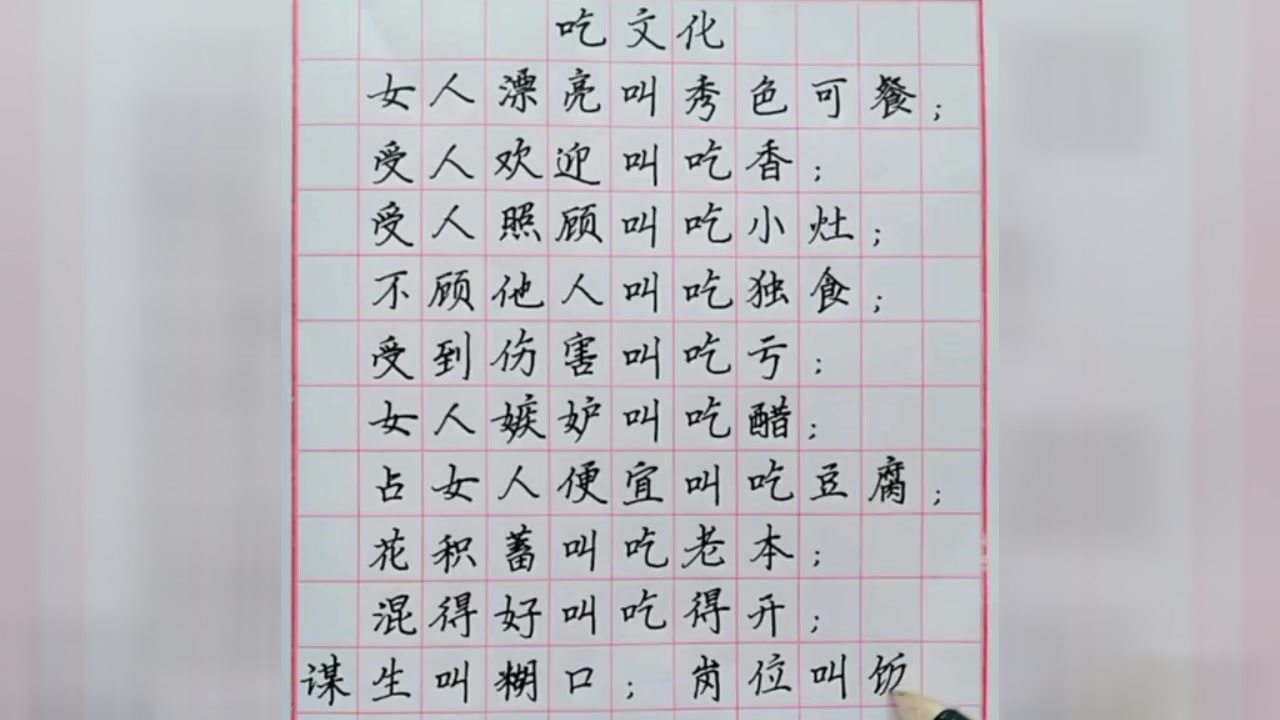 吃文化
女人漂亮叫秀色可餐；
受人欢迎叫吃香；
受人照顾叫吃小灶；
不顾他人叫吃独食；
受到伤害叫吃亏；
女人嫉妒叫吃醋；
占女人便宜叫吃豆腐；
花积蓄叫吃老本；
混得好叫吃得开；
谋生叫糊口；岗位叫饭